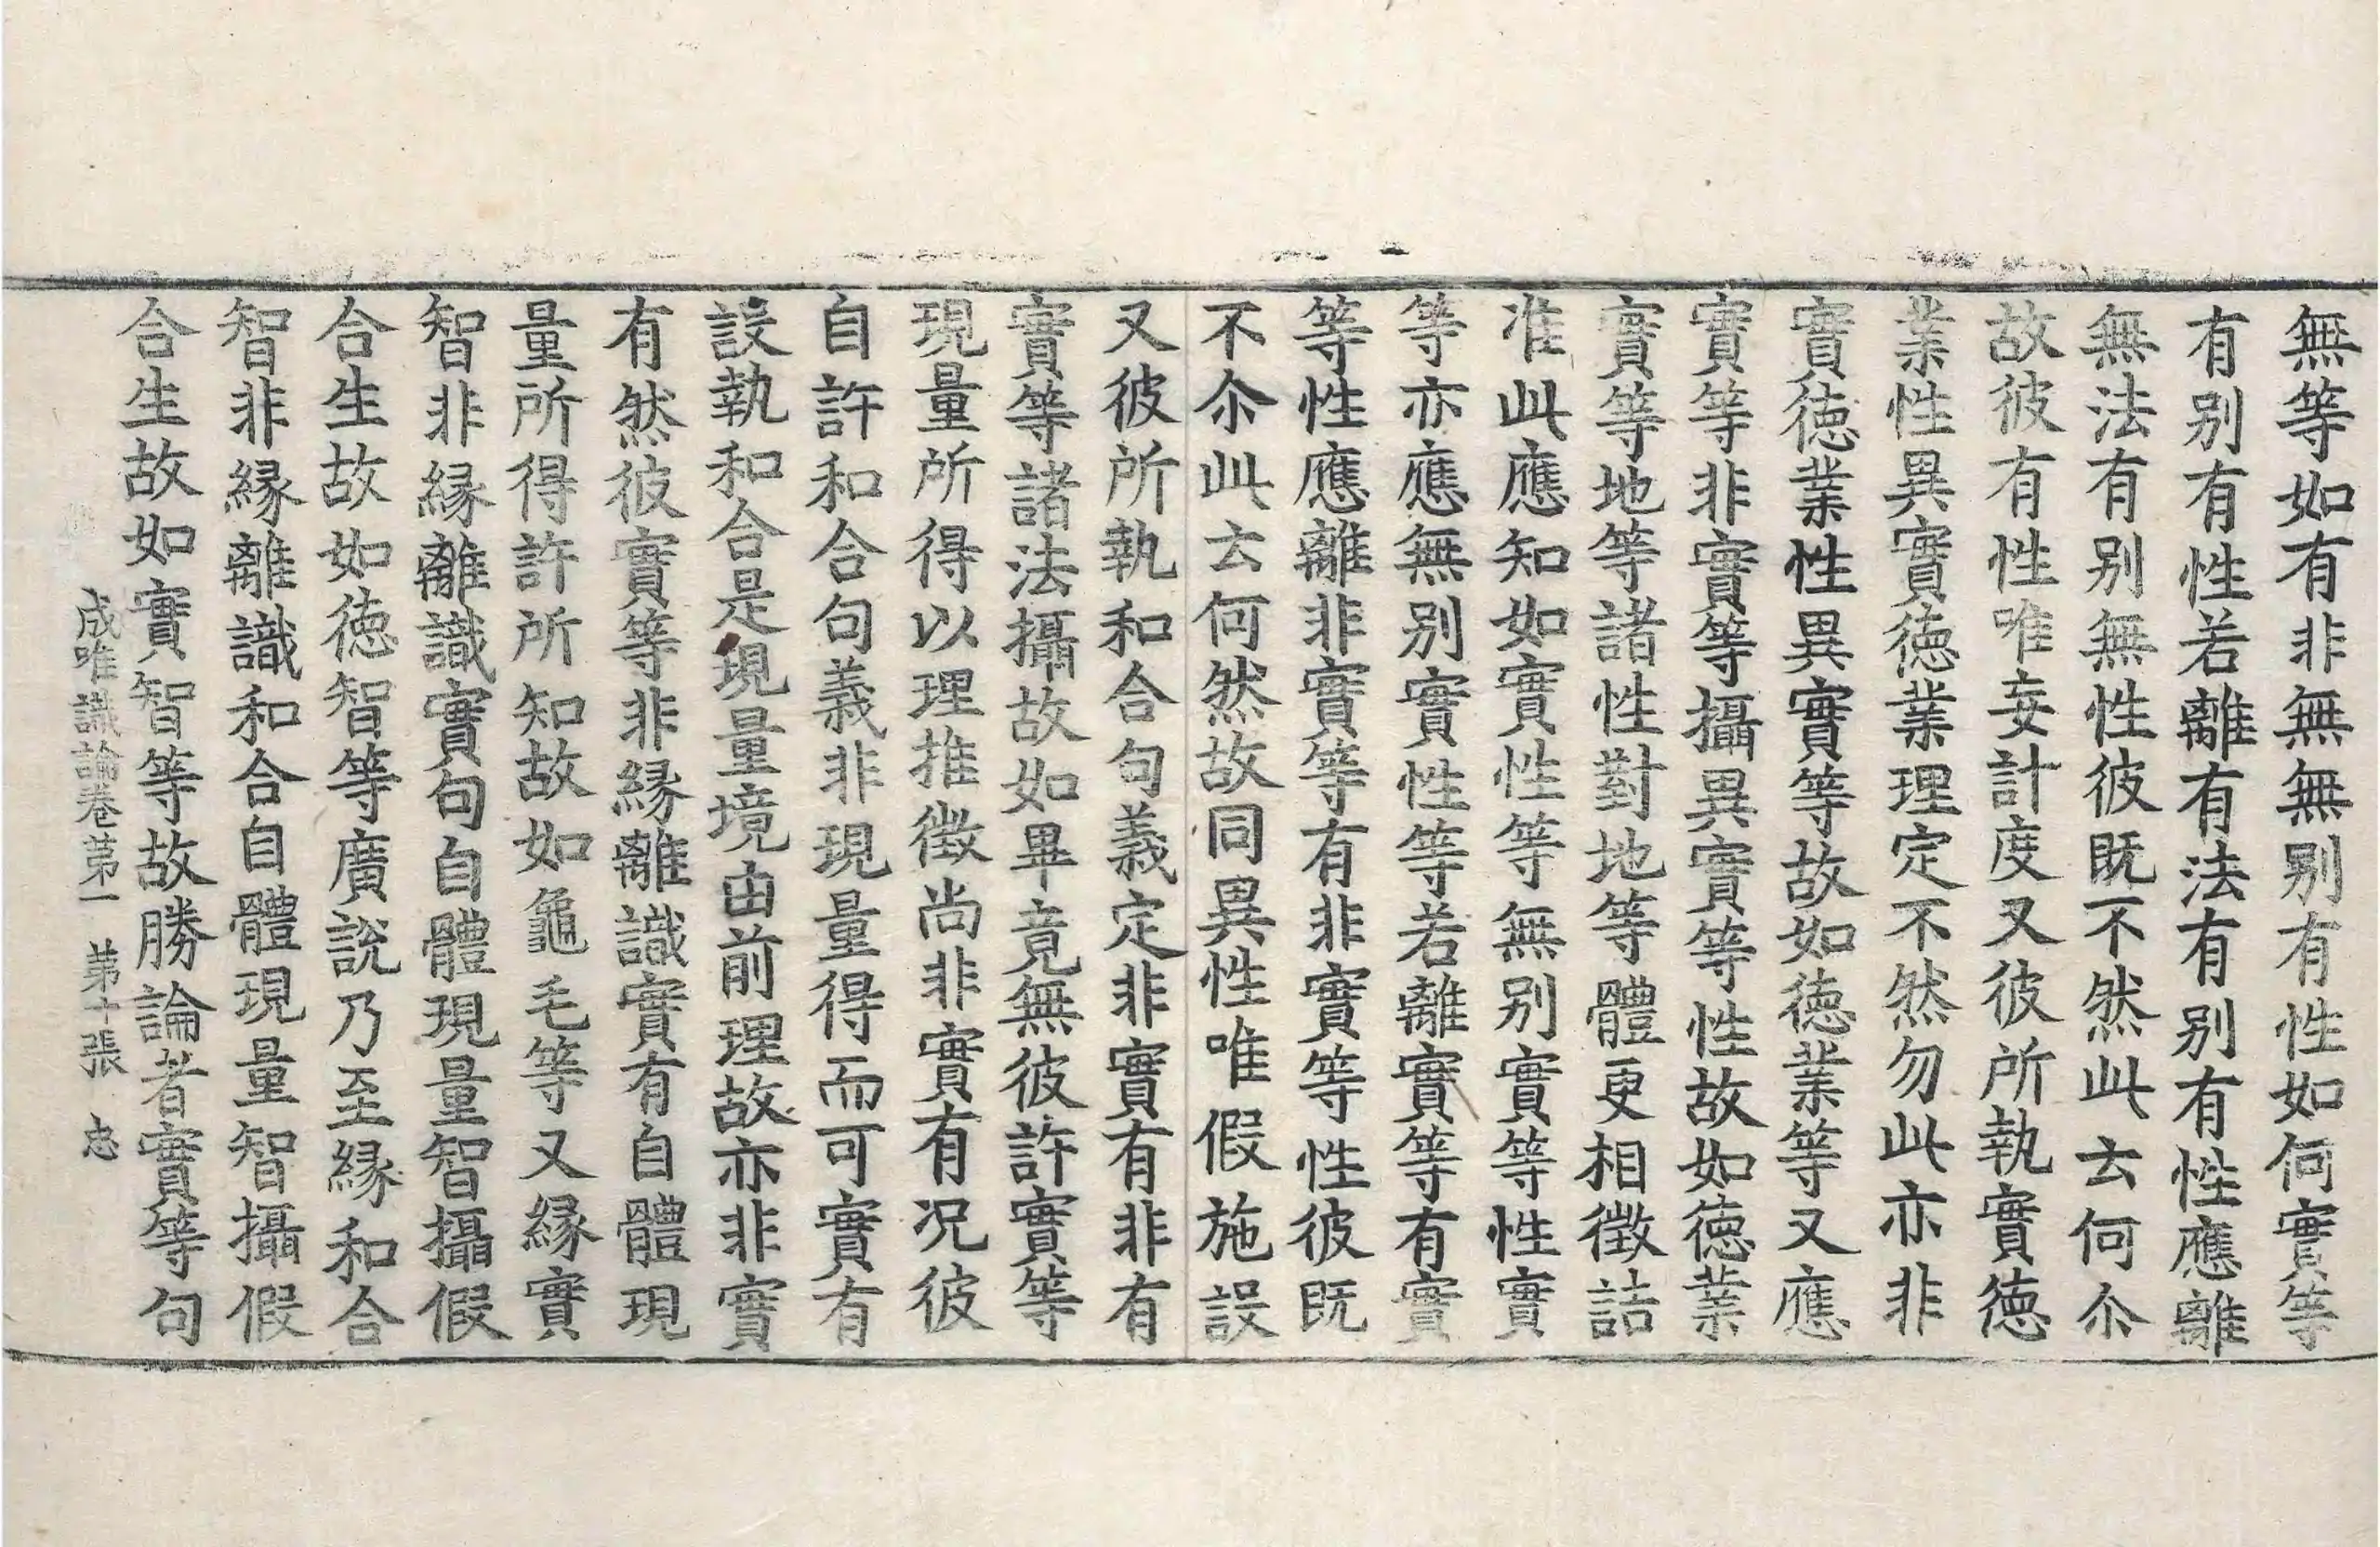 無等如有非無無别有性如何實等
有别有性若離有法有别有性應離
無法有别無性彼既不然此云何尒
故彼有性唯妄計度又彼所執實徳
業性異實徳業理定不然勿此亦非
實徳業性異實等故如徳業等又應
實等非實等攝異實等性故如徳業
實等地等諸性對地等體更相徵詰
准此應知如實性等無别實等性實
等亦應無别實性等若離實等有實
等性應離非實等有非實等性彼既
不尒此云何然故同異性唯假施設
又彼所執和合句義定非實有非有
實等諸法攝故如畢竟無彼許實等
現量所得以理推徵尚非實有况彼
自許和合句義非現量得而可實有
設執和合是現量境由前理故亦非實
有然彼實等非縁離識實有自體現
量所得許所知故如龜毛等又縁實
智非縁離識實句自體現量智攝假
合生故如徳智等廣説乃至縁和合
智非縁離識和合自體現量智攝假
合生故如實智等故勝論者實等句
成唯識論卷苐一 苐十張 忠